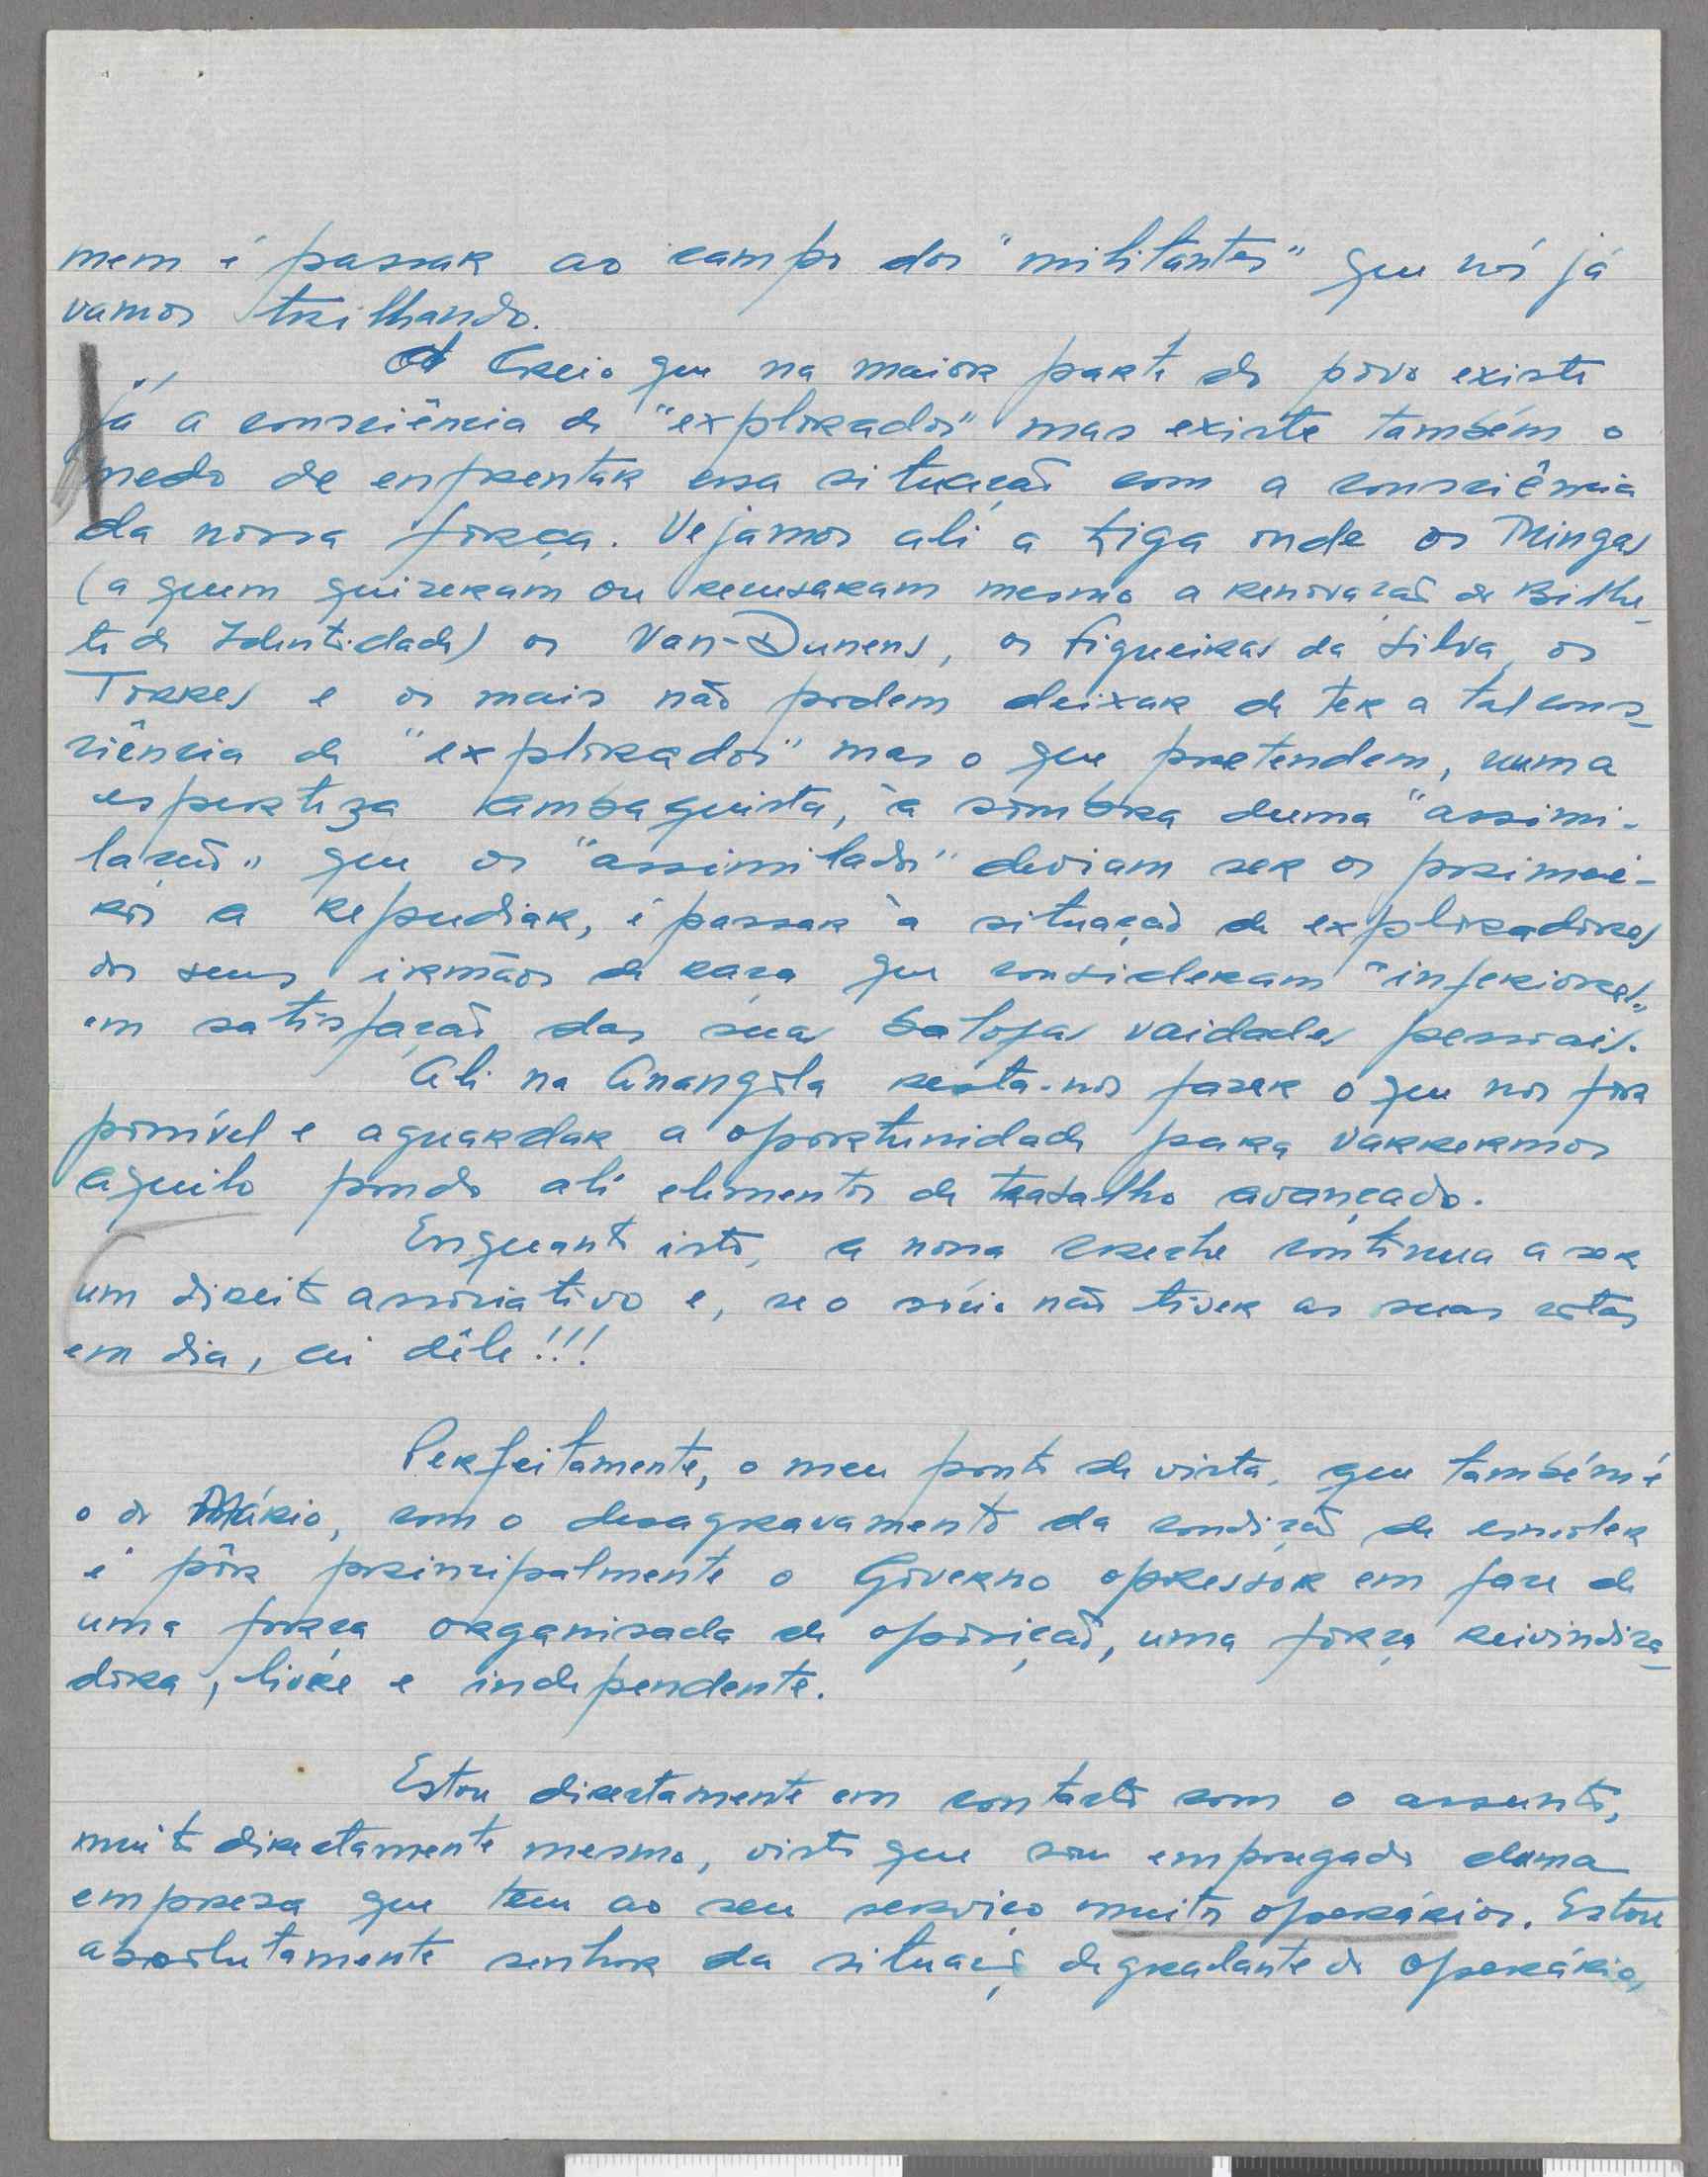 mem é passar ao campo dos "militantes" que nós já
vamos trilhando.
Creio que na maior parte do povo existe
já a consciência de "explorados" mas existe também o
medo de enfrentar essa situação com a consciência
da nossa força. Vejamos ali a Liga onde os Mingas
(a quem quiseram ou recusaram mesmo a renovação de Bilhe-
te de Identidade) os Van-Dunens, os Figueiras da Silva, os
Torres e os mais não podem deixar de ter a tal cons-
ciência de "explorados" mas o que pretendem, numa
esperteza ambaquista, à sombra duma "assimi-
lação" que os "assimilados" deviam ser os primei-
ros a repudiar, é passar à situação de exploradores
dos seus irmãos de raça que consideram "inferiores"
em satisfação das suas balofas vaidades pessoais.
Ali na Anangola resta-nos fazer o que nos fôr
possível e aguardar a oportunidade para varrermos
aquilo pondo ali elementos de trabalho avançado.
Enquanto isto, a nossa creche continua a ser
um direito associativo e, se o sócio não tiver as suas cotas
em dia, ai dêle!!!
Perfeitamente, o meu ponto de vista, que também é
o do Mário, com o desagravamento da condição de
é pôr principalmente o Governo opressor em face de
uma força organisada de oposição, uma força reivindica-
dora, livre e independente.
Estou directamente em contacto com o assunto,
muito directamente mesmo, visto que sou empregado duma
empresa que tem ao seu serviço muitos operários. Estou
absolutamente senhor da situação degradante do operário,